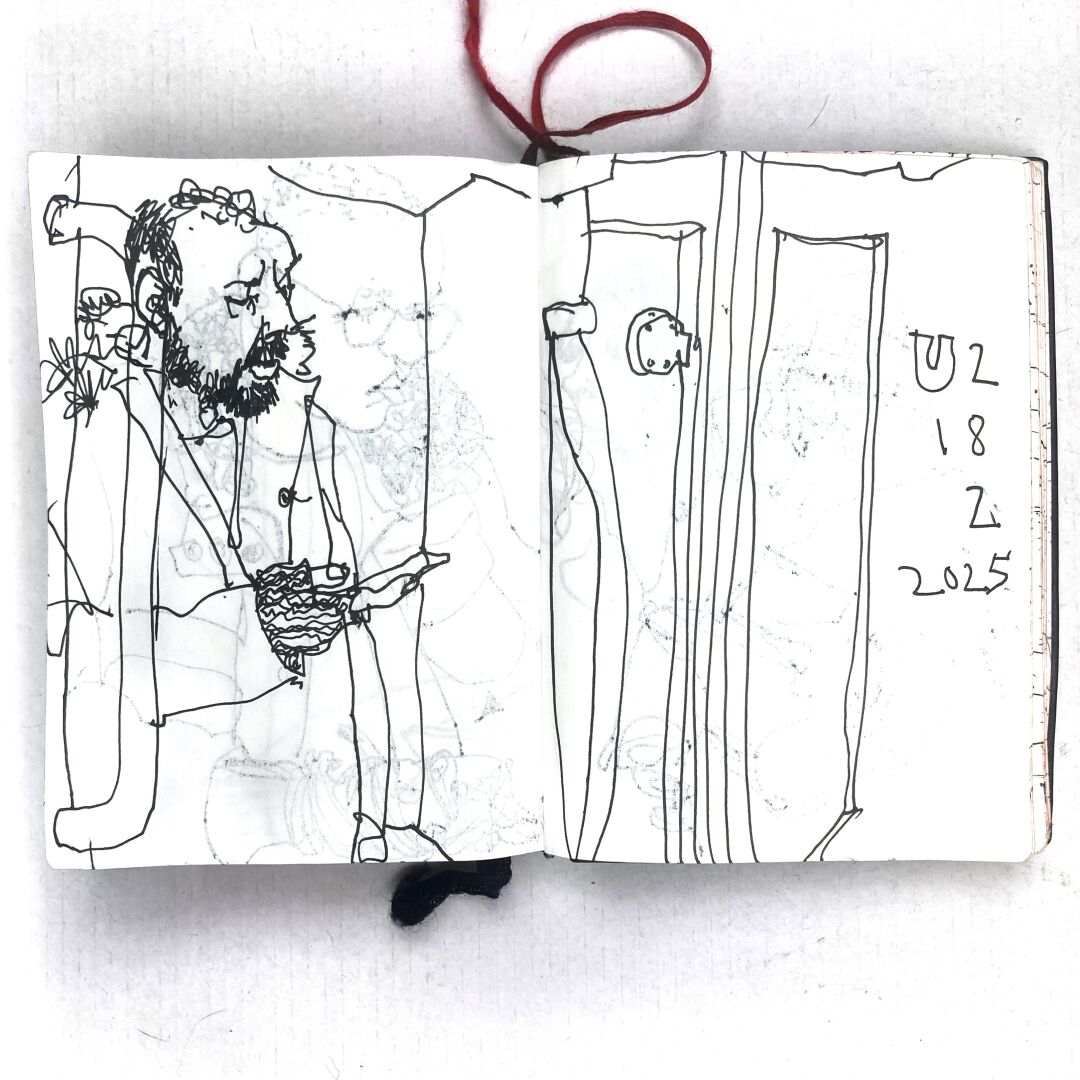 U2
18
2.
2025